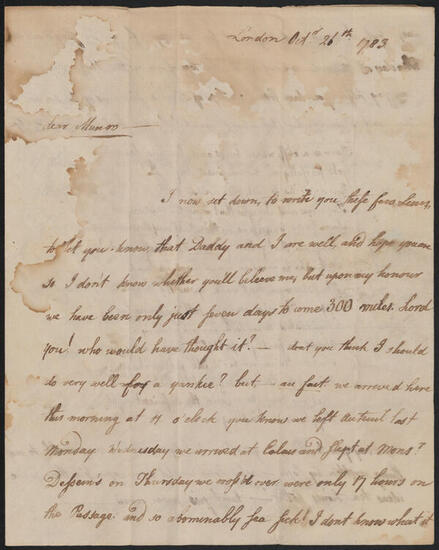 London Octr. 26th 1783
dear Mama
I now set down to write you these few Lines,
to let you know, that Daddy and I are well, and hope you are
so I don't know whether you'll beleeve me, but upon my honour
we have been only just seven days to come 300 miles. Lord
you! who would have thought it? — dont you think I should
do very well for a yankee? but — au fait. we arrived here
this morning at 11 o'clock you know we left Auteuil last
Monday, Wednesday we arrived at Calais and slept at Monsr
Dessein's on Thursday we cross'd over were only 17 hours on
the Passage, and so abominably sea sick! I dont know what it